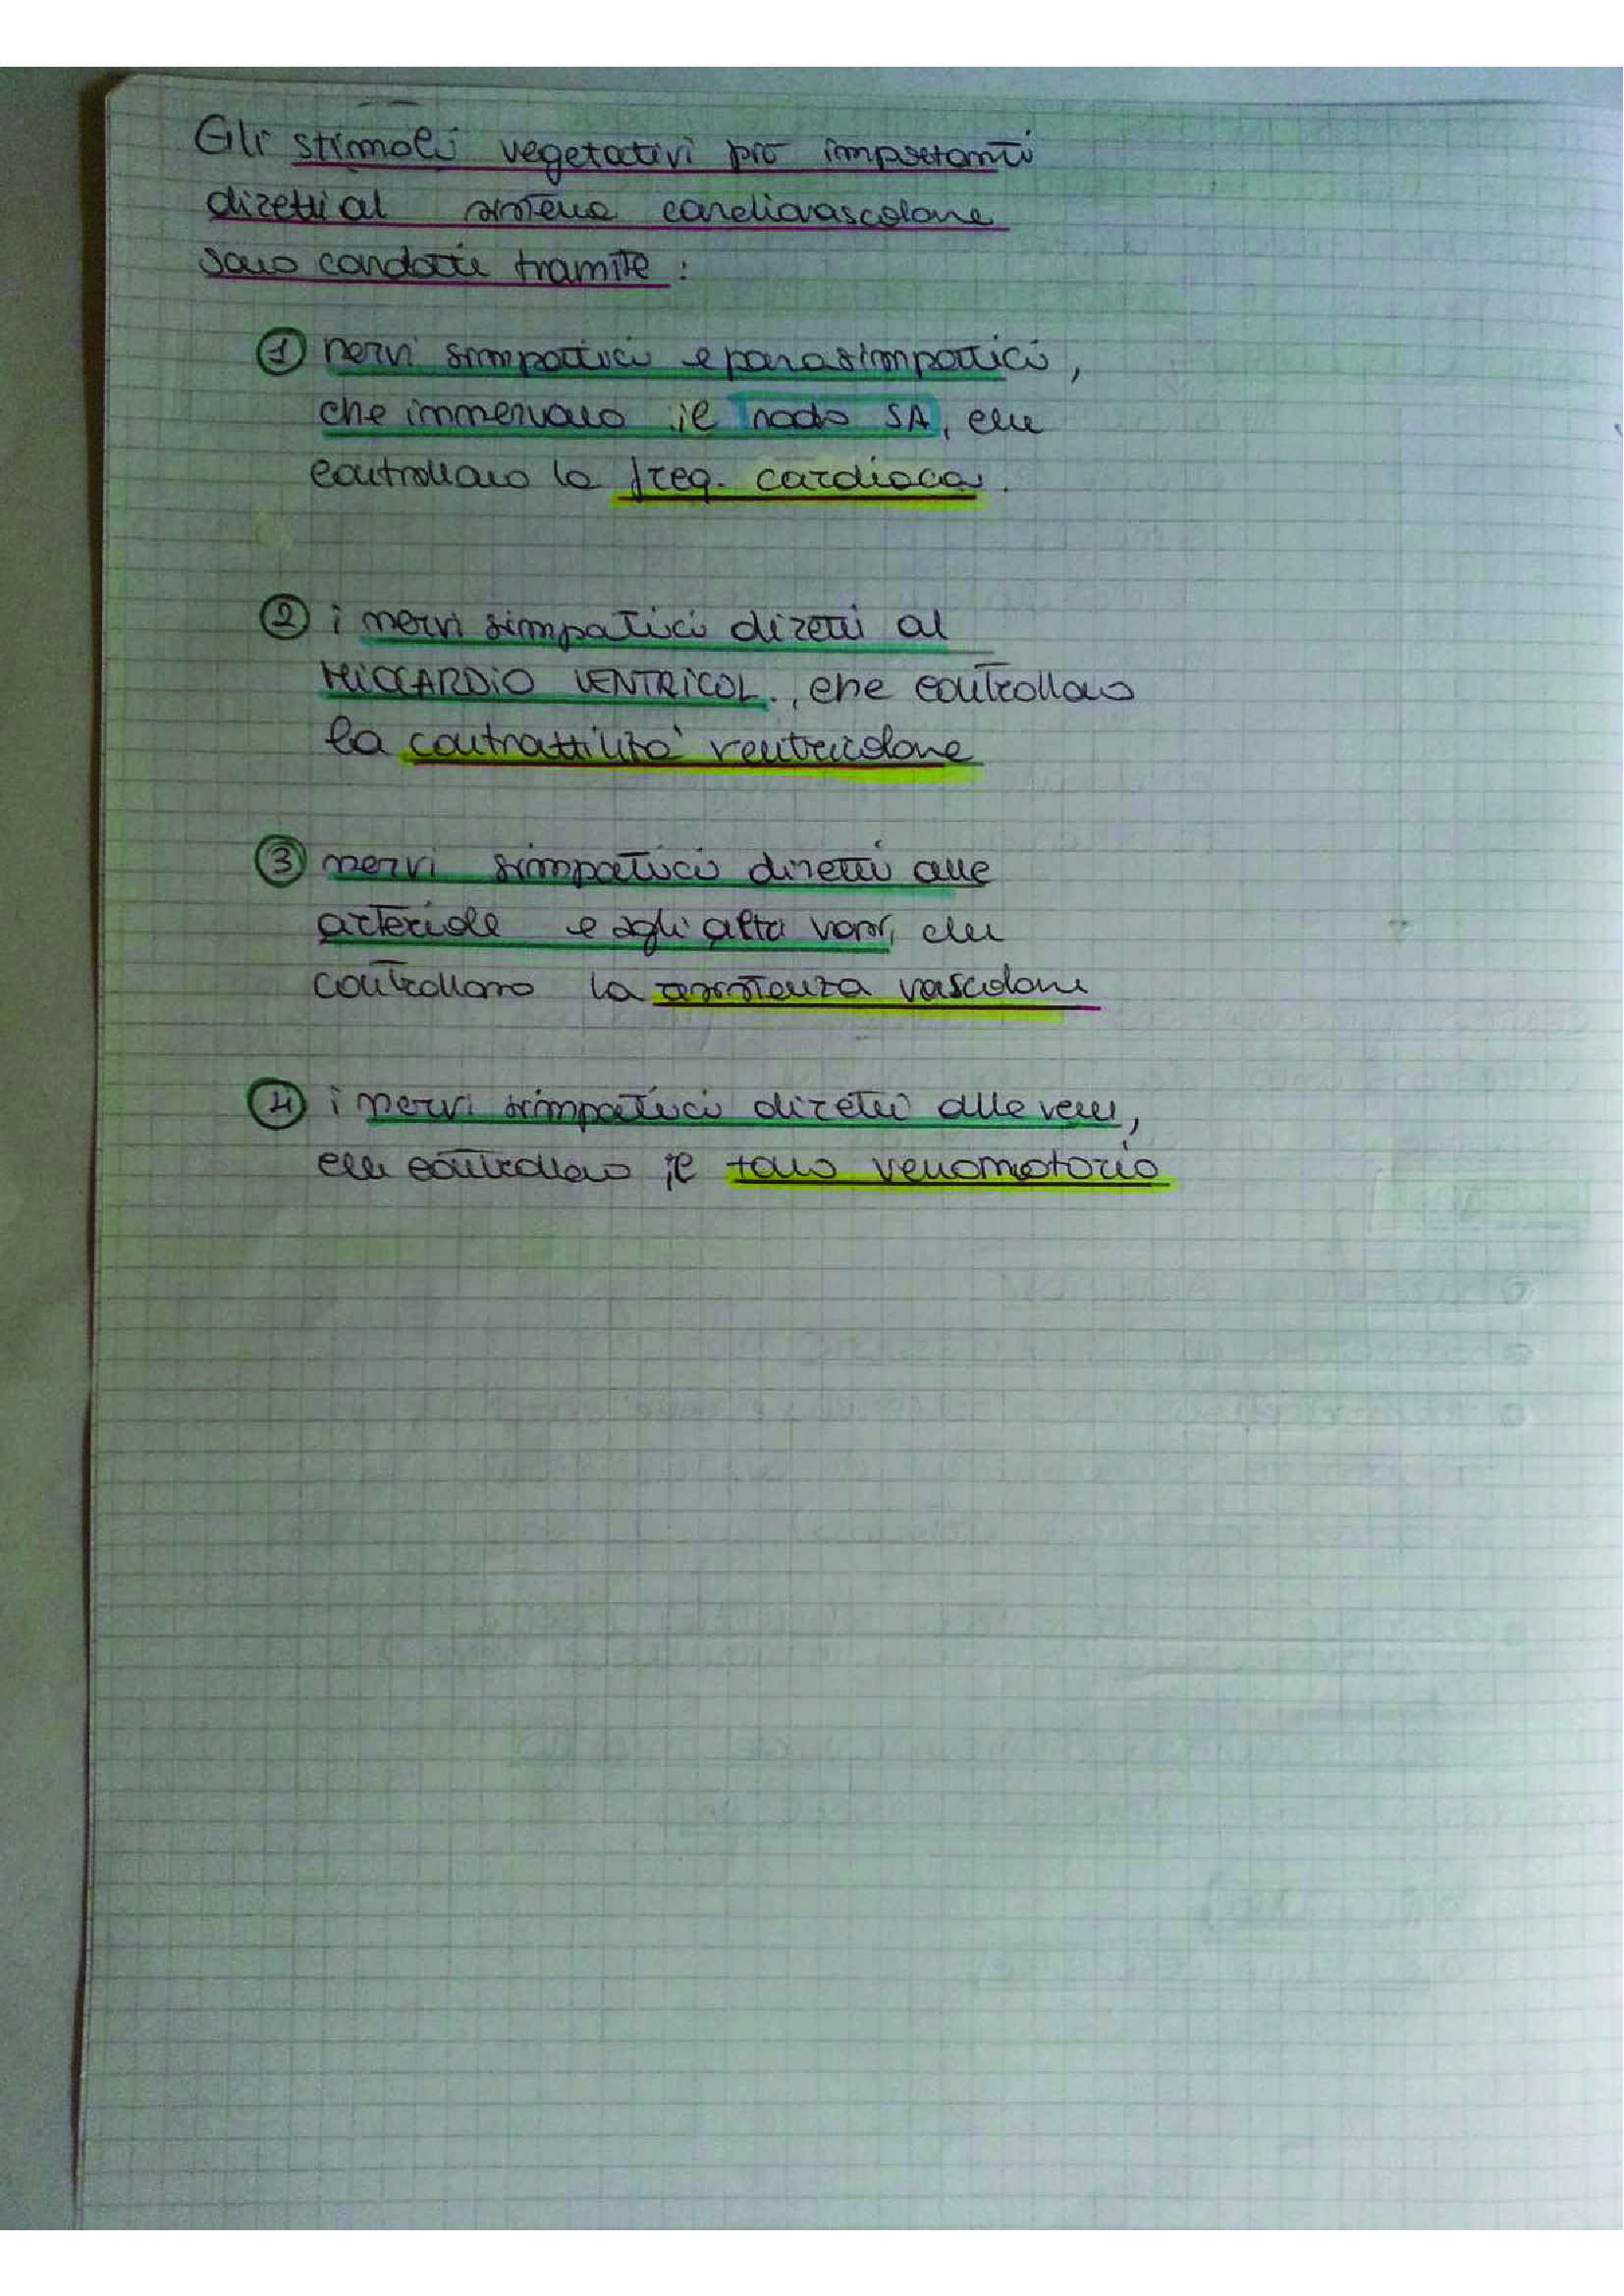 Gli stimoli vegetativi più importanti
diretti al sistema cardiovascolare
sono condotti tramite :
① nervi simpatici e parasimpatici,
che innervano il nodo SA, che
controllano la freq. cardiaca.
② i nervi simpatici diretti al
MIOCARDIO VENTRICOL., che controllano
la contrattilità ventricolare
③ nervi simpatici diretti alle
arteriole e agli altri vasi, che
controllano la resistenza vascolare
④ i nervi simpatici diretti alle vene,
che controllano il tono venomotorio